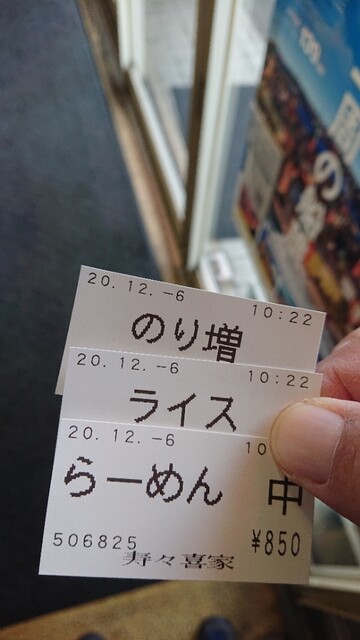 20.12.-6 10:22
のり増
20.12.-6 10:22
ライス
20.12.-6 10
らーめん 中
506825 ¥850
寿々喜家
の